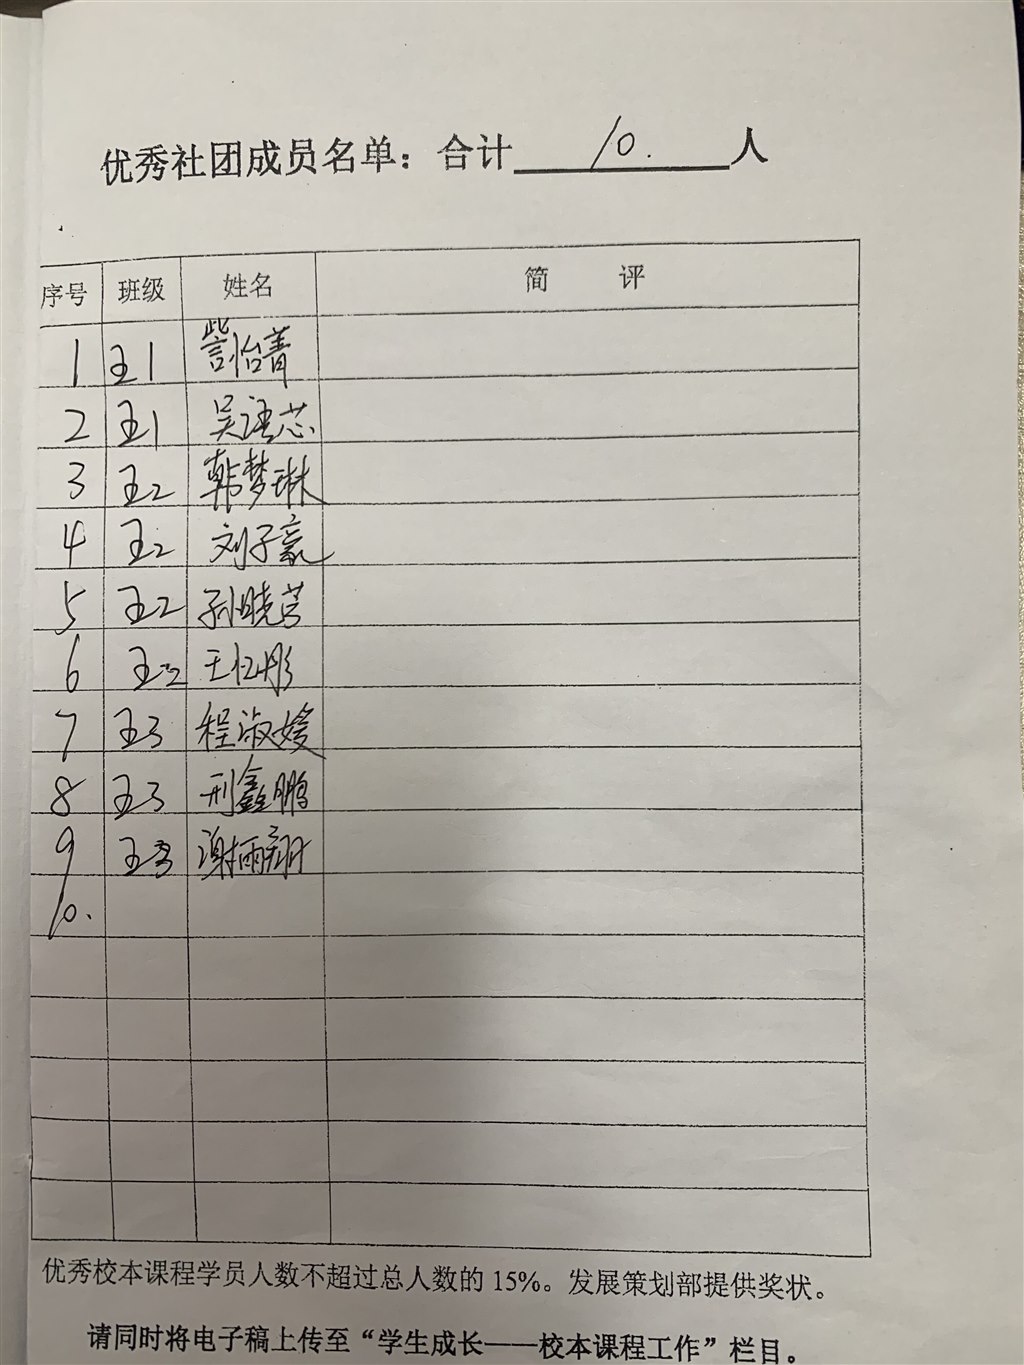 优秀社团成员名单：合计 10. 人
序号 班级 姓名 简 评
1 五1 訾怡菁
2 五1 吴语芯
3 五2 韩梦琳
4 五2 刘子毫
5 五2 孙晓茗
6 五2 王忆彤
7 五3 程淑媛
8 五3 刑鑫鹏
9 五3 谢雨翮
10.
优秀校本课程学员人数不超过总人数的 15%。发展策划部提供奖状。
请同时将电子稿上传至“学生成长——校本课程工作”栏目。